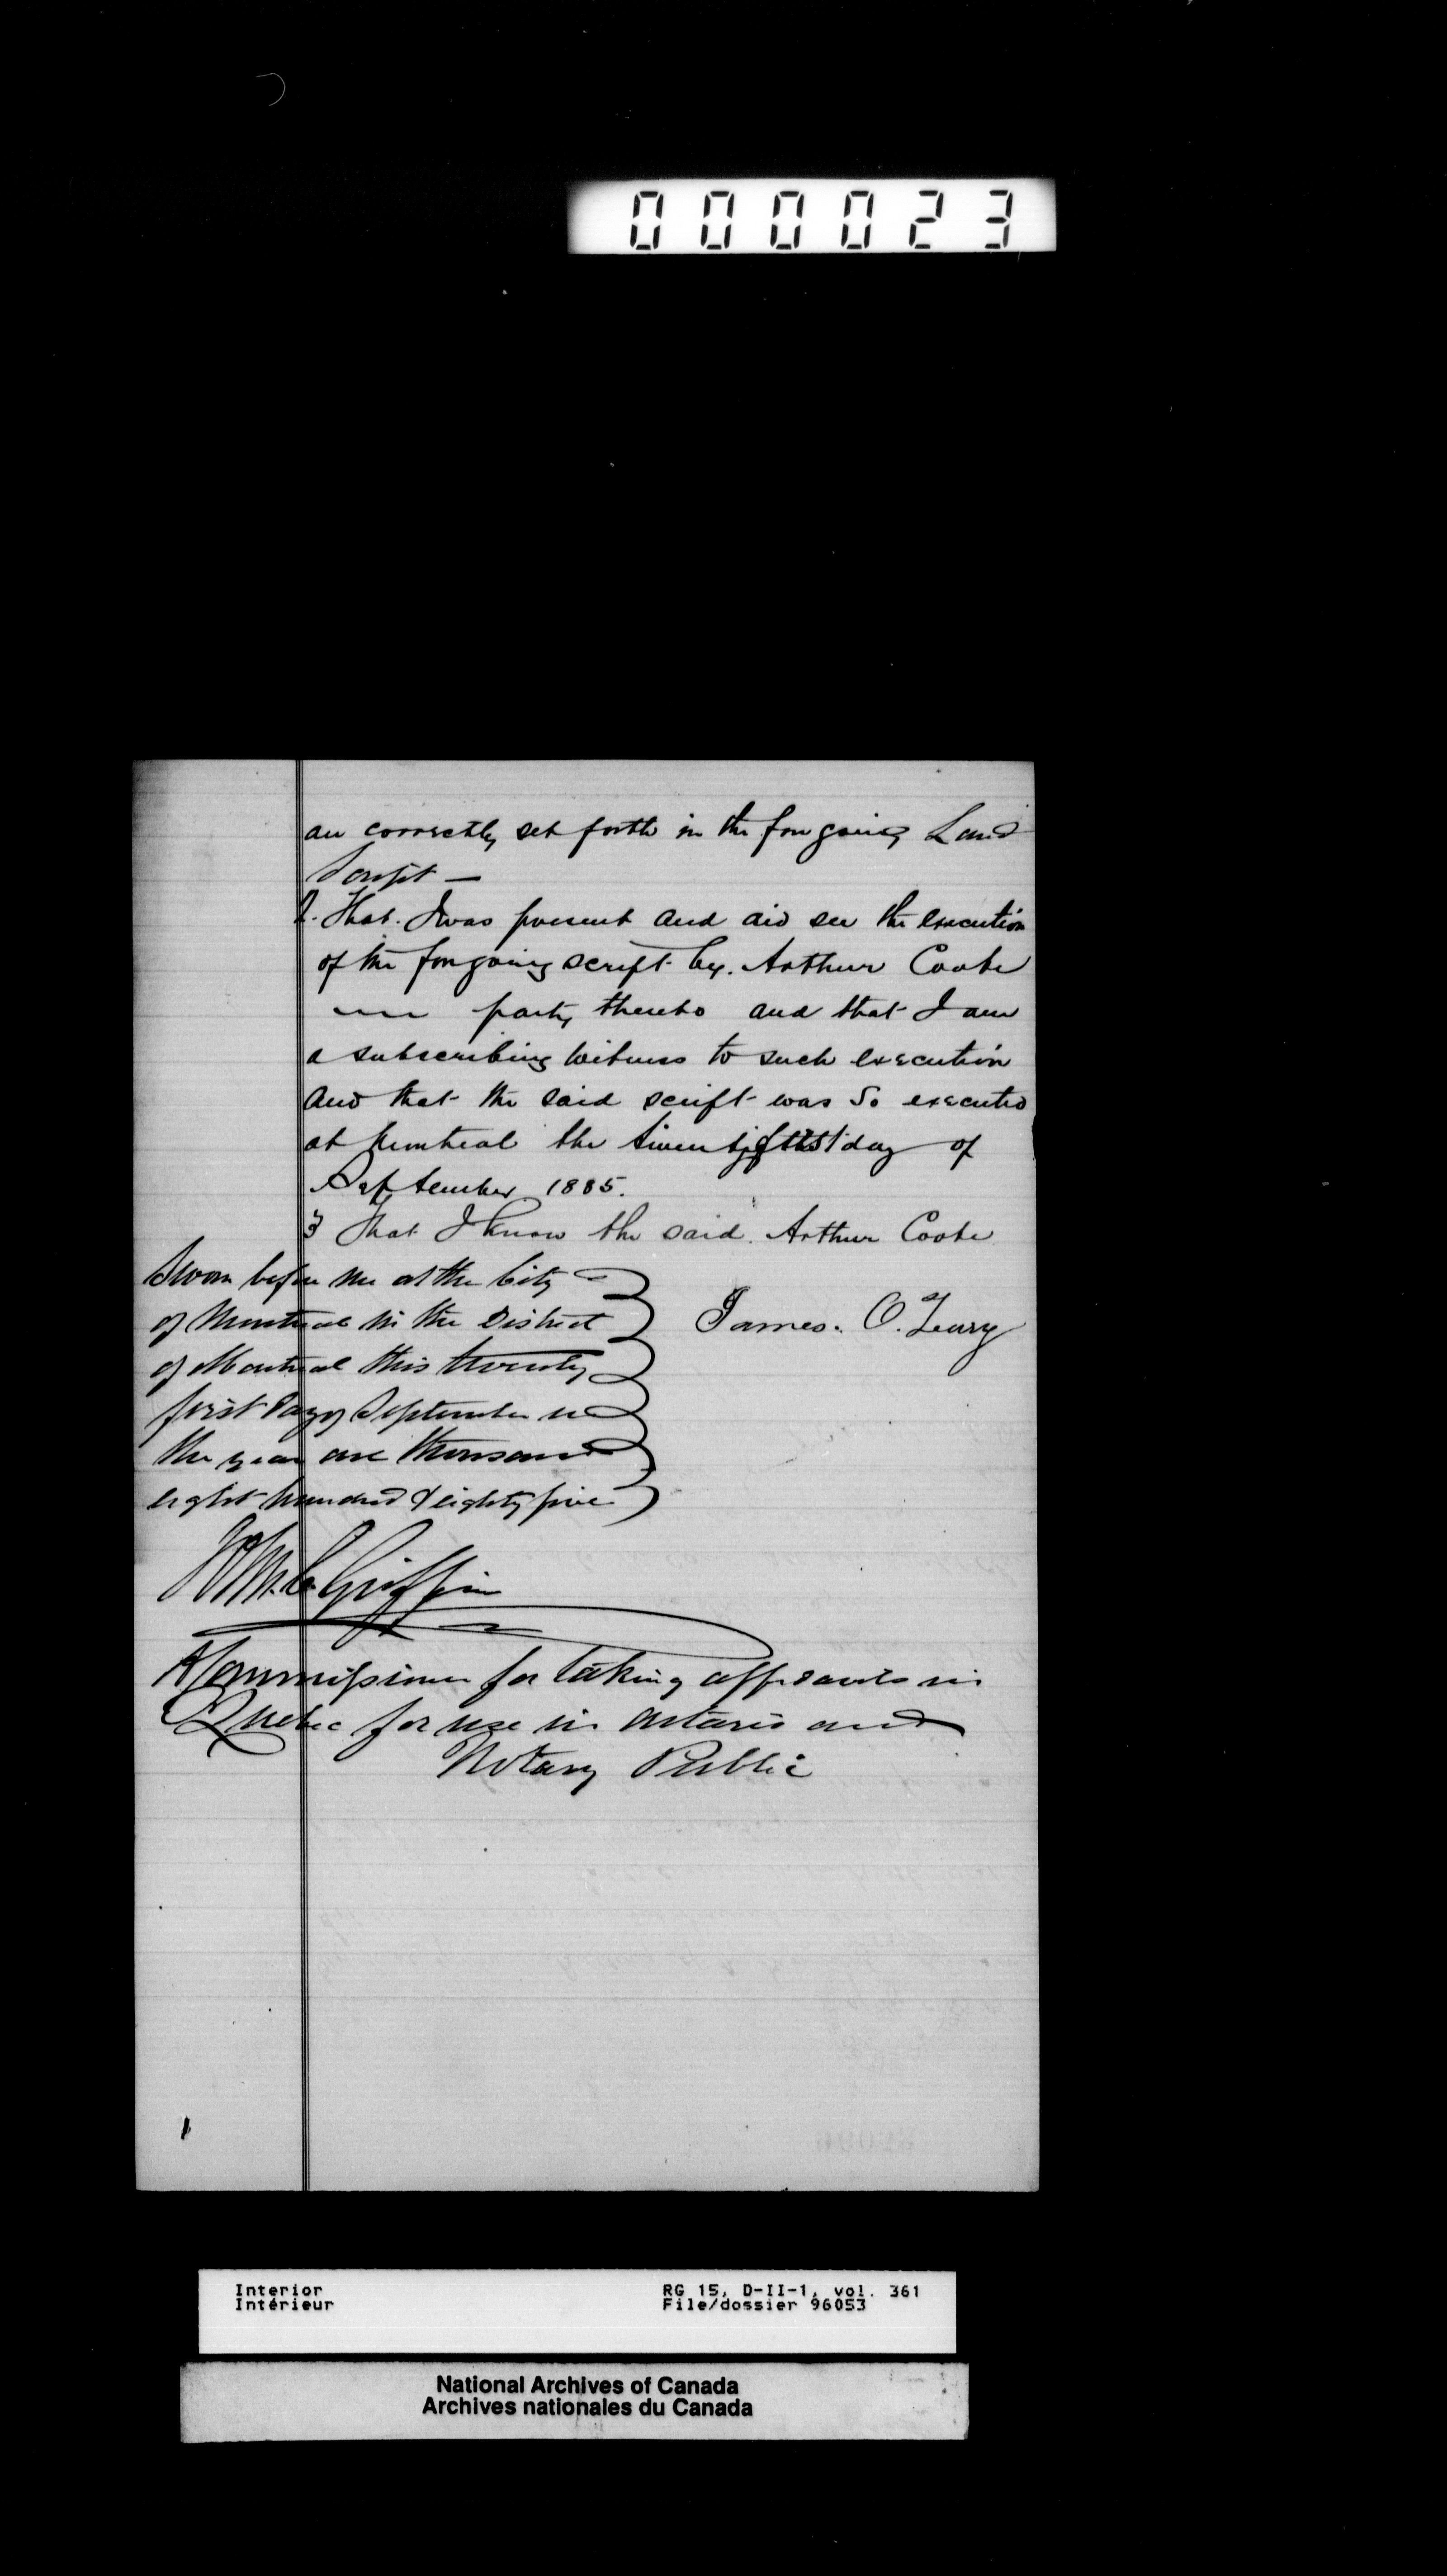 000023
are correctly set forth in the foregoing Land
Script —
2. That. I was present and did see the execution
of the foregoing script by. Arthur Coote
party thereto and that I am
a subscribing witness to such execution
and that the said script was So executed
at Montreal the twenty first day of
September 1885.
3 That I know the said. Arthur Coote
Sworn before me at the City
of Montreal in the District
of Montreal this twenty
first day of September in
the year one thousand
eight hundred & eighty five
James. O. Leary
Wm. C. Griffin
A Commissioner for taking affidavits in
Quebec for use in Ontario and
Notary Public
Interior
Intérieur
RG 15, D-II-1, vol. 361
File/dossier 96053
National Archives of Canada
Archives nationales du Canada